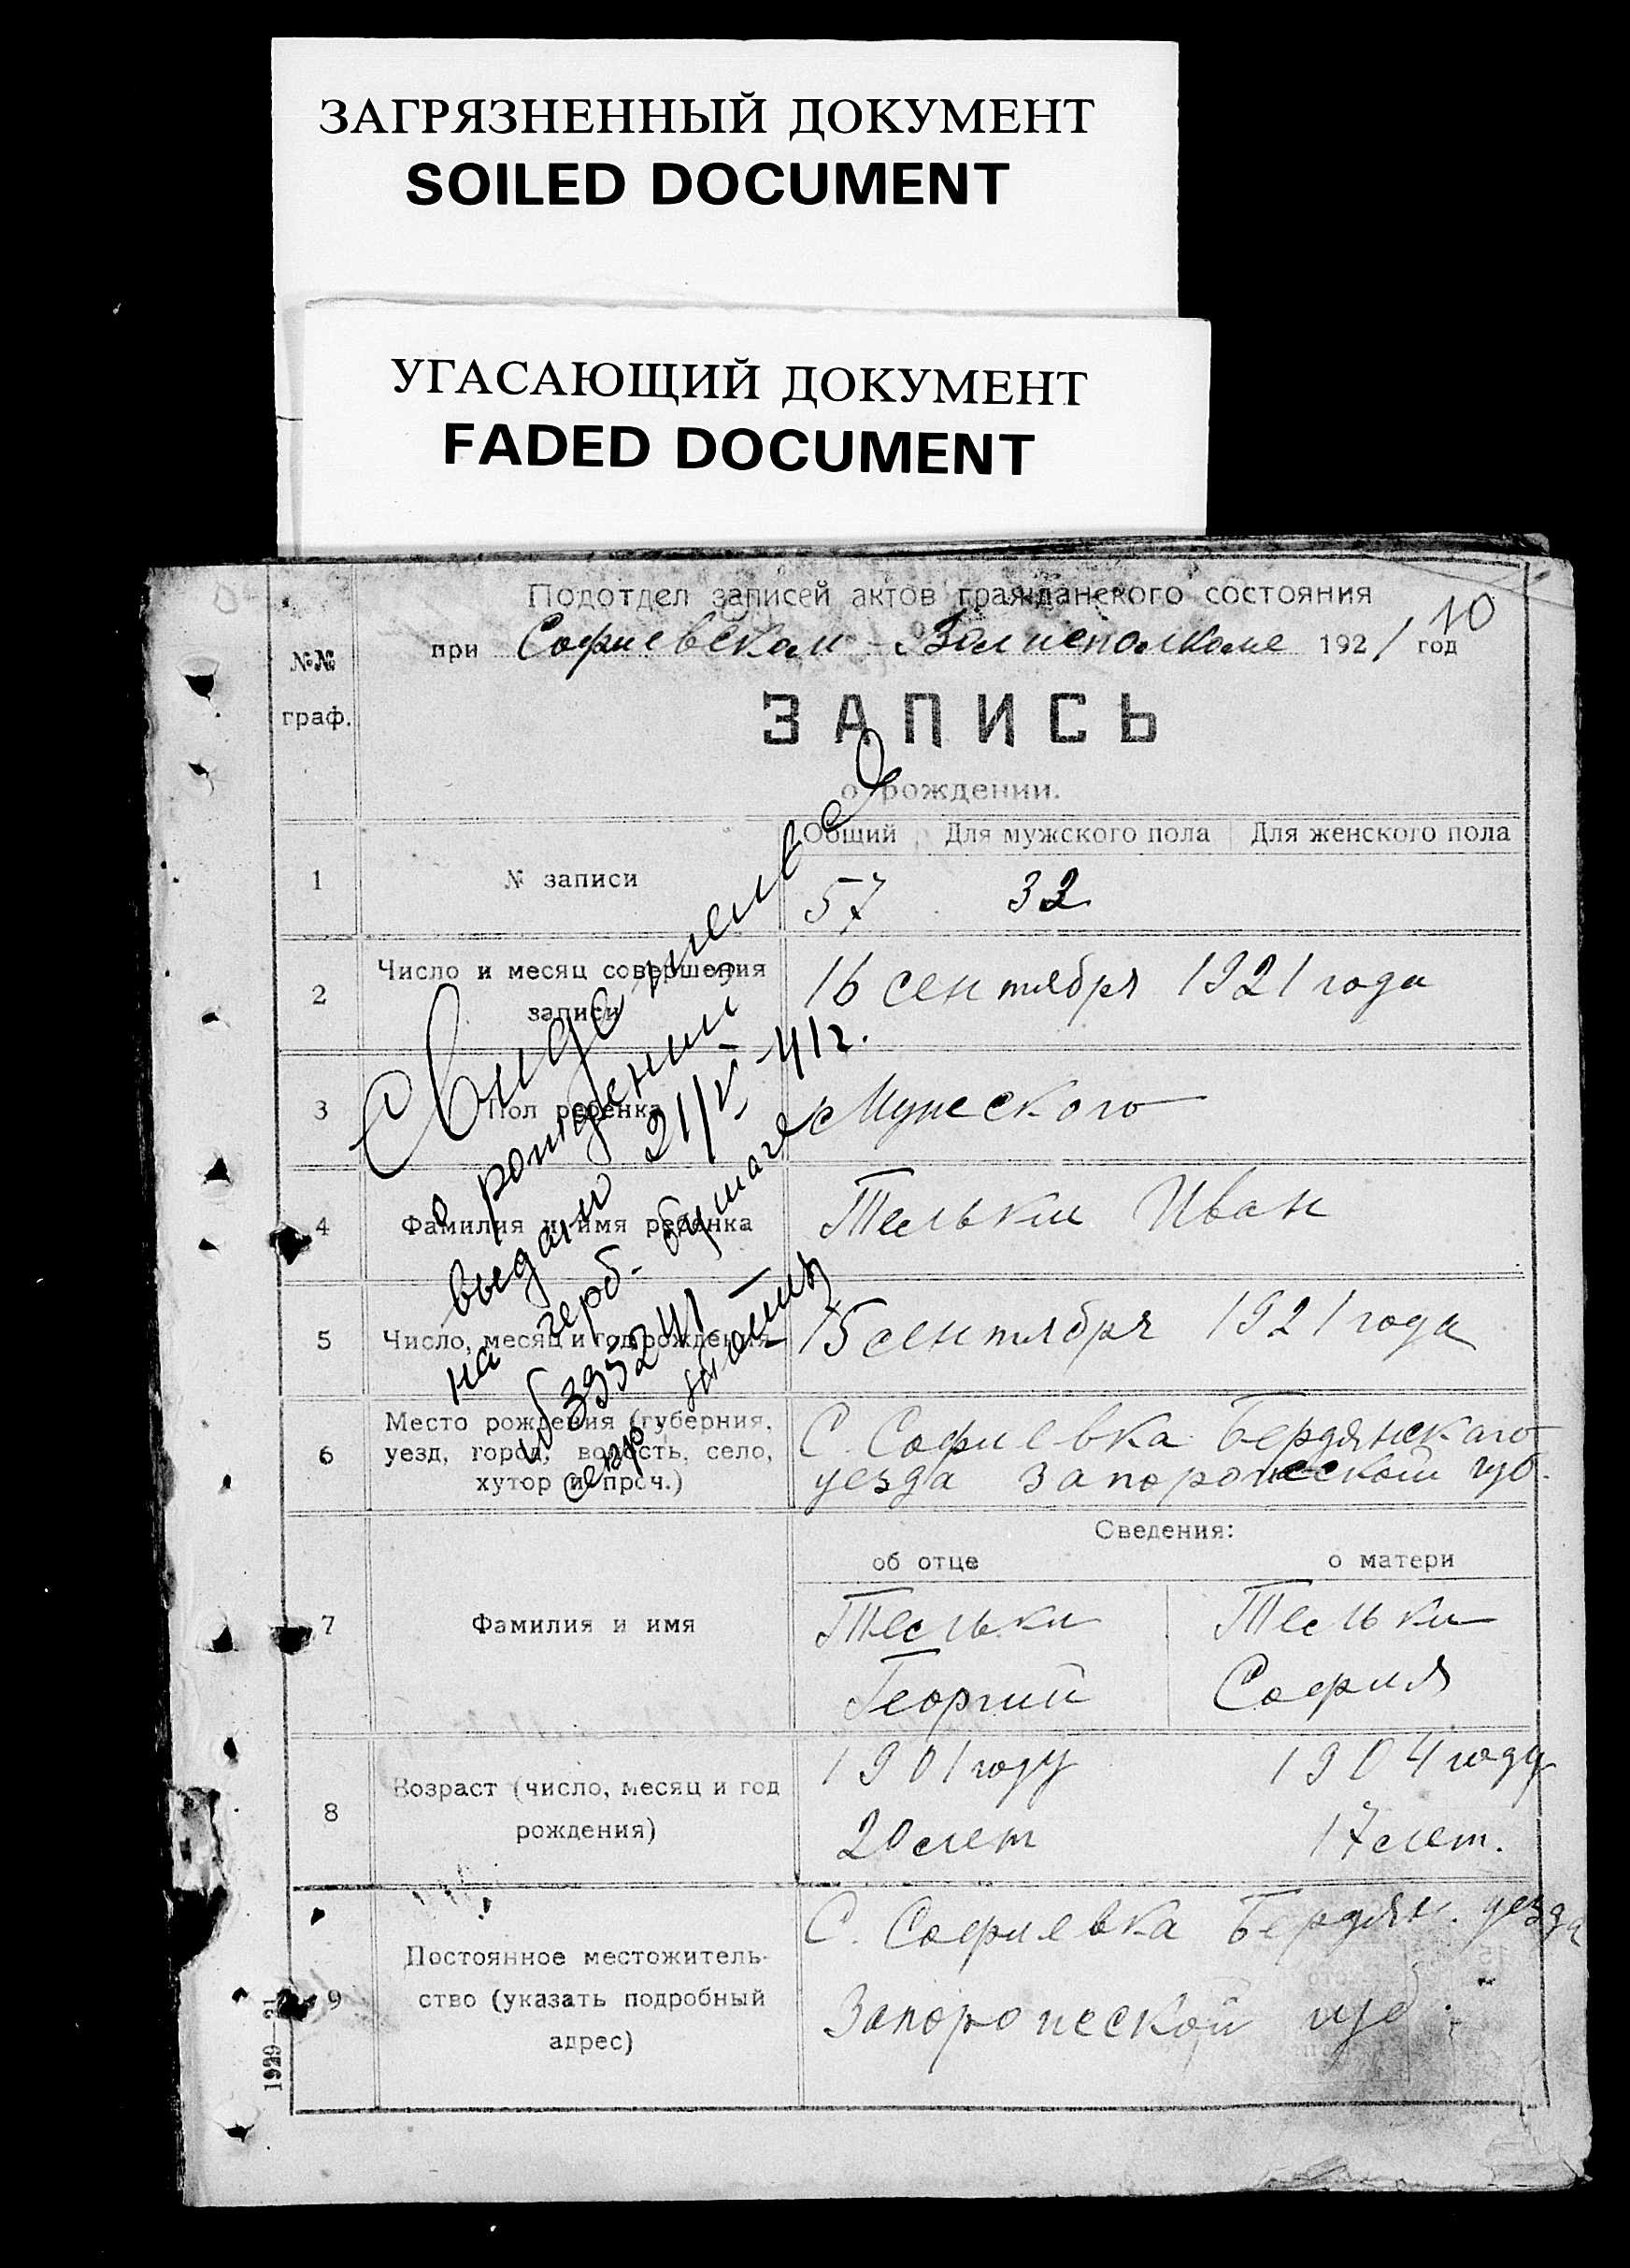 ЗАГРЯЗНЕННЫЙ ДОКУМЕНТ
SOILED DOCUMENT
УГАСАЮЩИЙ ДОКУМЕНТ
FADED DOCUMENT
Подотдел записей актов гражданского состояния
10
при Софиевском - Волисполкоме 1921 год
№№ граф.
ЗАПИСЬ
о рождении.
Общий Для мужского пола Для женского пола
1 № записи 57 32
2 Число и месяц совершения записи 16 сентября 1921 года
3 Пол ребенка Мужского
4 Фамилия и имя ребенка Иван
5 Число, месяц и год рождения 15 сентября 1921 года
6 Место рождения (губерния, уезд, город, волость, село, хутор и проч.) С. Софиевка Бердянского
уезда Запорожской губ.
Сведения:
об отце о матери
7 Фамилия и имя
Георгий София
8 Возраст (число, месяц и год рождения) 1901 году 1904 году
20 лет 17 лет.
9 Постоянное местожитель-
ство (указать подробный
адрес)
С. Софиевка Бердян. уезда
Запорожской губ.
Свидетельство
о рождении
выдано 21/V-41г.
на герб. бумаге